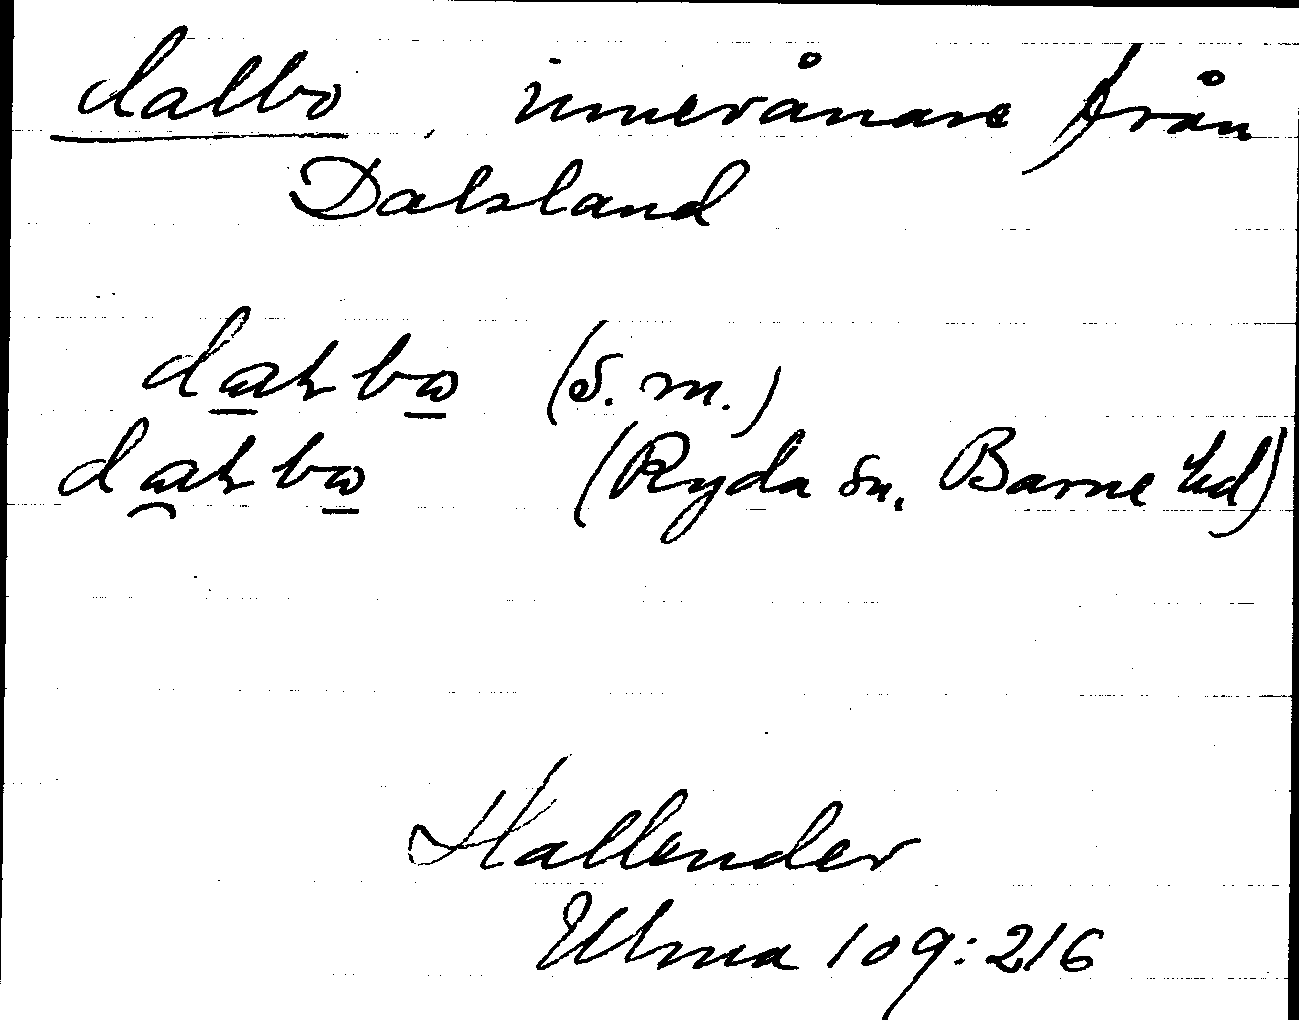 dalbo, innevånare från
Dalsland
daɫbɷ (s. m.)
daɫbɷ (Ryda sn. Barne hd)
Hallender
Ulma 109:216